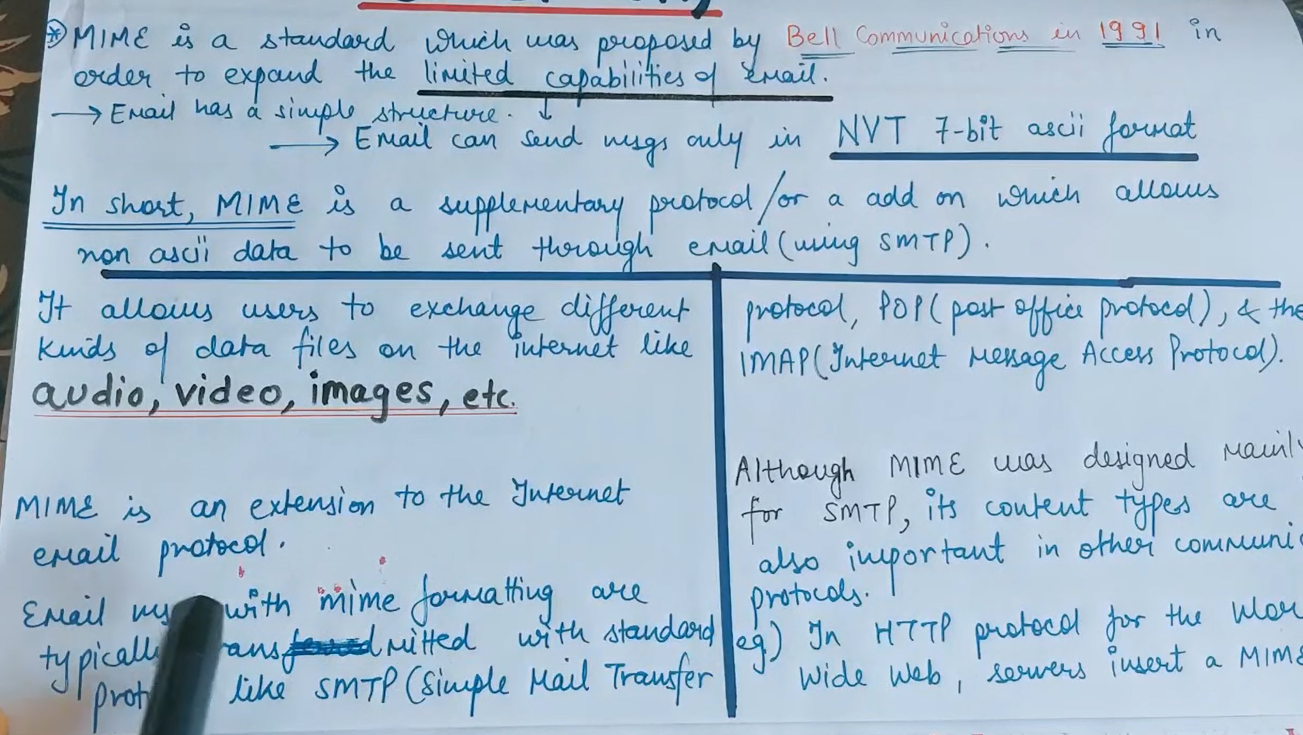 MIME is a standard which was proposed by Bell Communications in 1991 in
order to expand the limited capabilities of Email.
→ Email has a simple structure. ↓
→ Email can send msgs only in NVT 7-bit ascii format
In short, MIME is a supplementary protocol/or a add on which allows
non ascii data to be sent through email (using SMTP).
It allows users to exchange different
kinds of data files on the internet like
audio, video, images, etc.
MIME is an extension to the Internet
email protocol.
Email with mime formatting are
mitted with standard
like SMTP (Simple Mail Transfer
protocol, POP (post office protocol), & the
IMAP (Internet Message Access Protocol).
Although MIME was designed
for SMTP, its content types are
also important in other
protocols.
eg) In HTTP protocol for the
Wide Web, servers insert a MIME